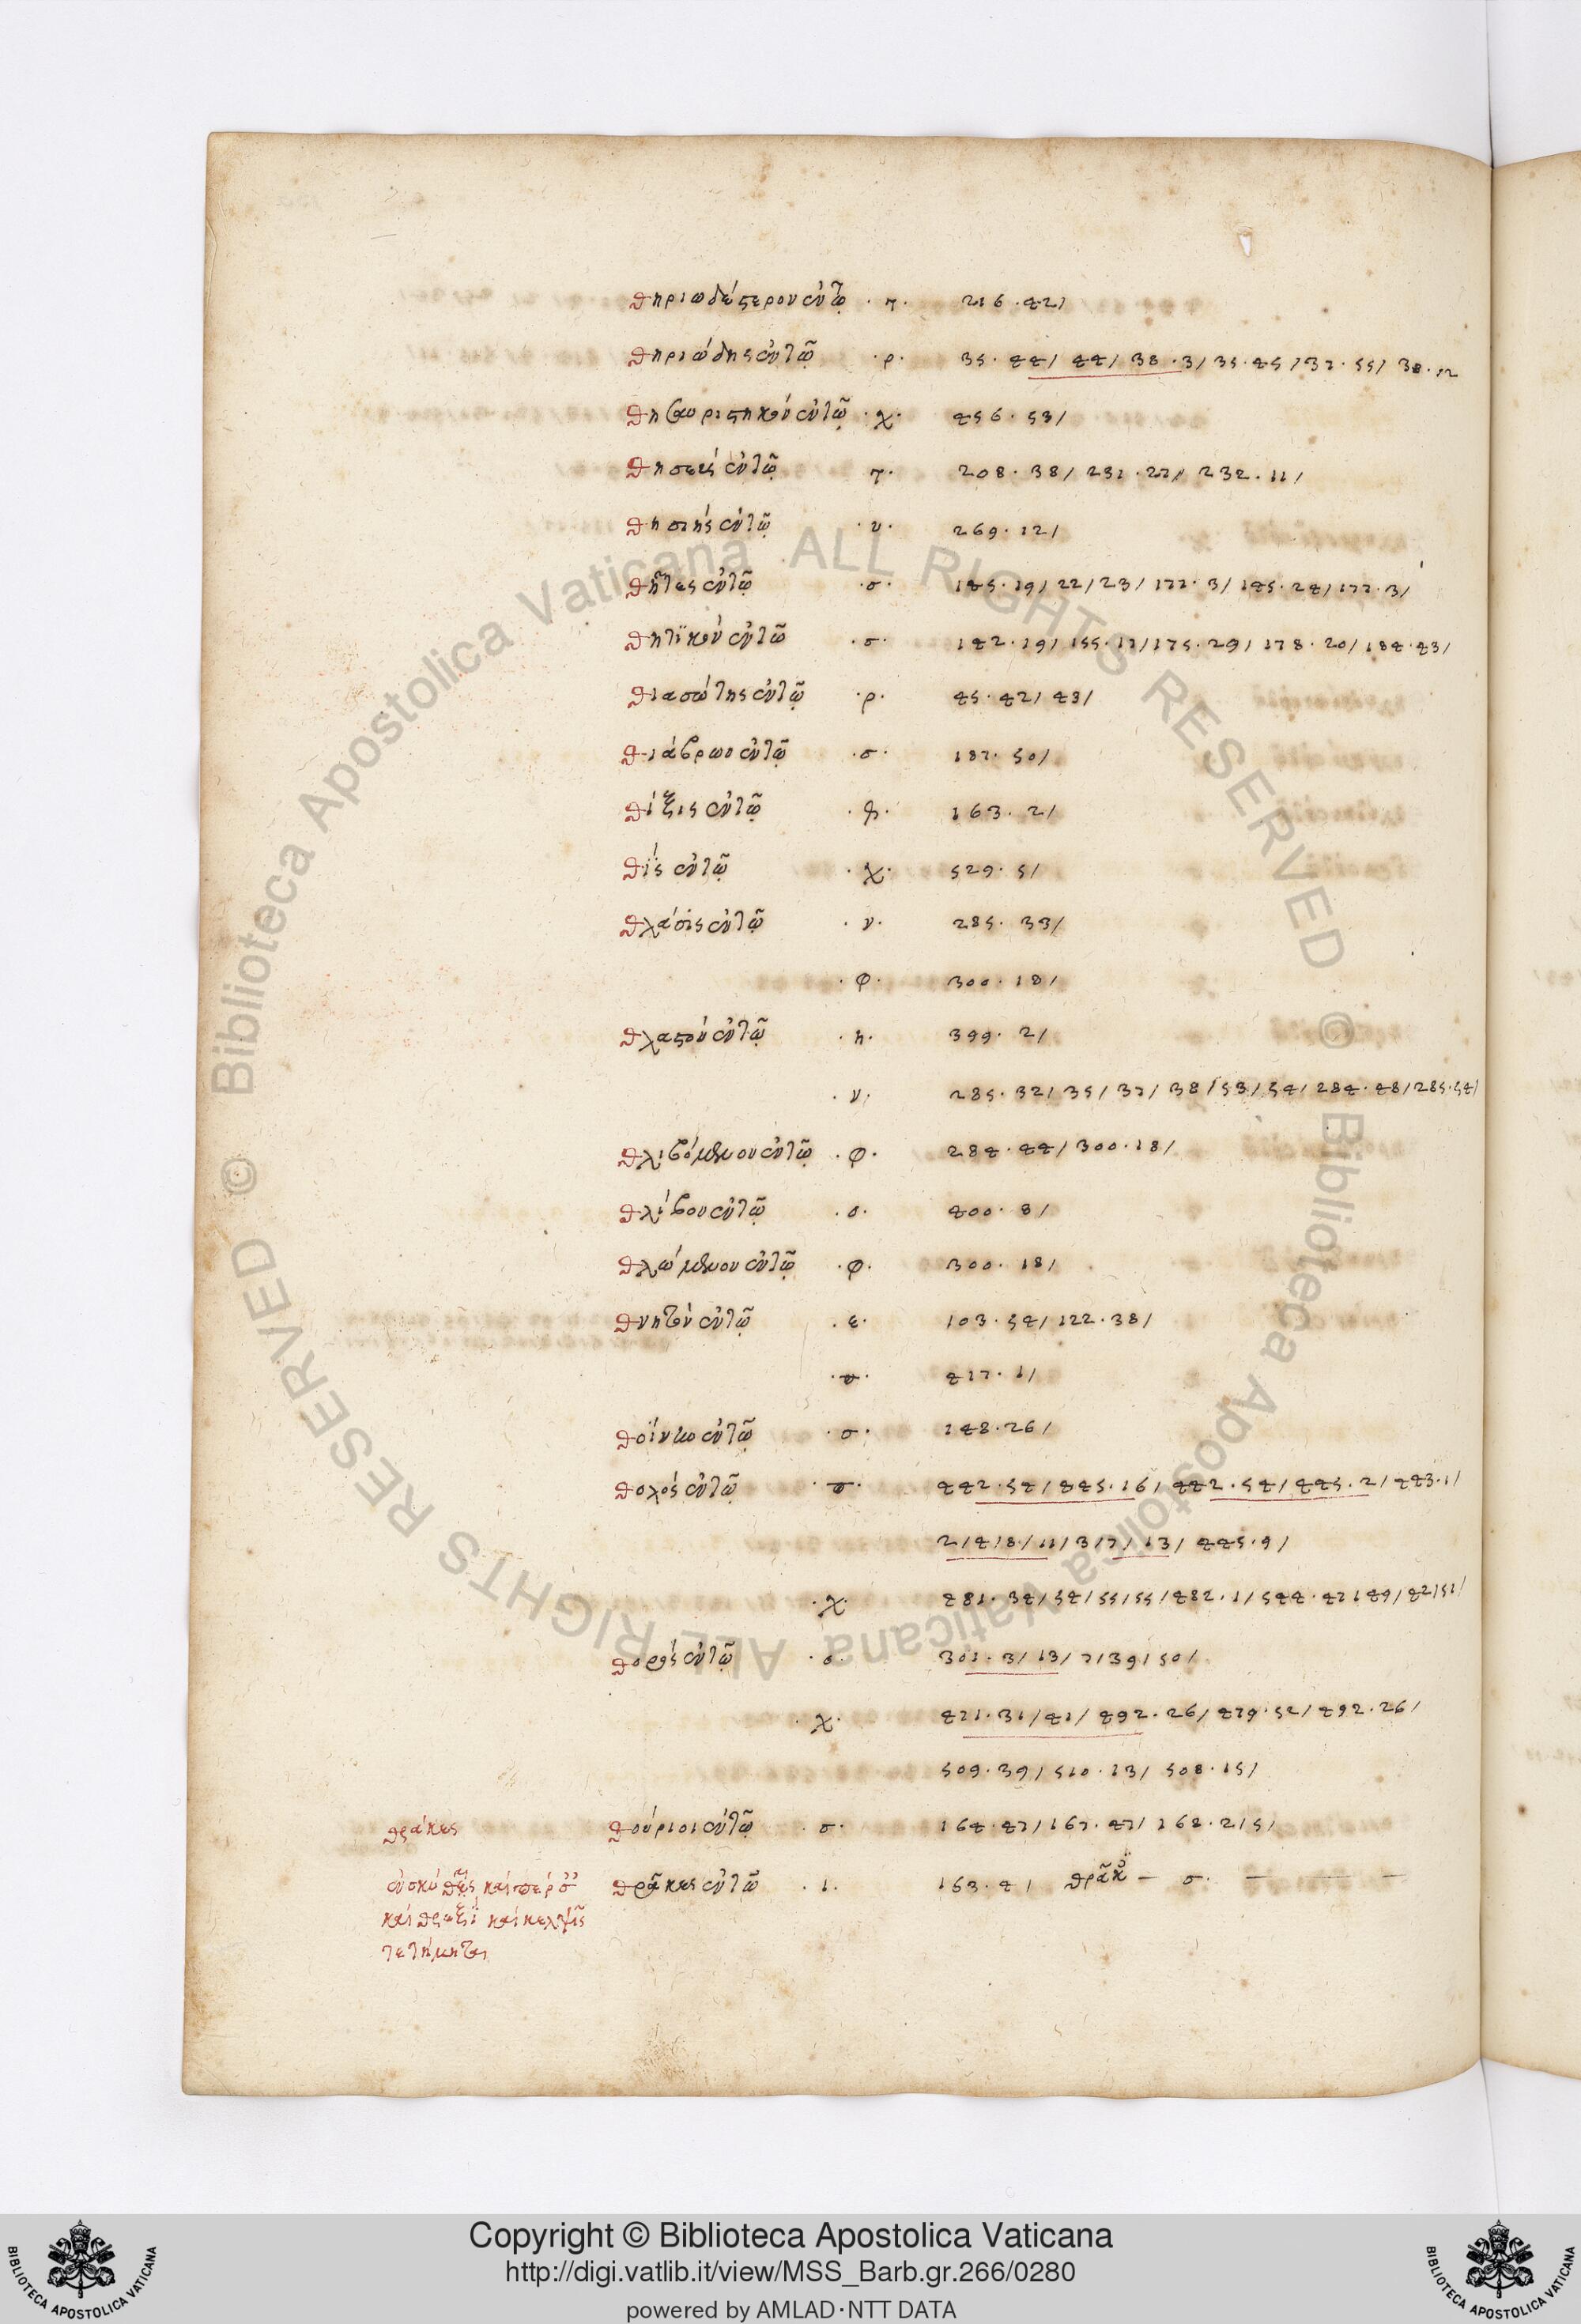 θηριωδέστερον ἐν τῷ · τ· 216 · 42/
θηριώδης ἐν τῷ · ρ· 35 · 44/ 44/ 38 · 3/ 35 · 45/ 37 · 55/ 38 · 12
θησαυριστικὸν ἐν τῷ · χ· 456 · 53/
θησεὺς ἐν τῷ τ· 208 · 38/ 231 · 27/ 232 · 11/
ἐν τῷ · υ· 269 · 12/
θῆτες ἐν τῷ · σ· 145 · 19/ 22/ 23/ 177 · 3/ 145 · 24/ 177 · 3/
θητικὸν ἐν τῷ · σ· 142 · 19/ 155 · 17/ 175 · 29/ 178 · 20/ 184 · 43/
θιασώτης ἐν τῷ · ρ· 45 · 42/ 43/
θίαβρων ἐν τῷ · σ· 187 · 50/
θίξις ἐν τῷ 163 · 2/
θὶς ἐν τῷ · χ· 529 · 5/
θλάσις ἐν τῷ · ν· 285 · 33/
· φ· 300 · 18/
θλαστὸν ἐν τῷ · η· 399 · 2/
· ν· 285 · 32/ 35/ 37/ 38/ 53/ 54/ 284 · 48/ 285 · 54/
θλιβόμενον ἐν τῷ · φ· 284 · 44/ 300 · 18/
θλίβον ἐν τῷ · ο· 400 · 8/
θλώμενον ἐν τῷ · φ· 300 · 18/
θνητὸν ἐν τῷ · ε· 103 · 54/ 122 · 38/
417 · 1/
ἐν τῷ · σ· 148 · 26/
θολὸς ἐν τῷ · π· 442 · 54/ 445 · 16/ 442 · 54/ 445 · 2/ 443 · 1/
2/ 4/ 8/ 11/ 3/ 7/ 13/ 445 · 9/
· χ· 481 · 34/ 54/ 55/ 55/ 482 · 1/ 544 · 47/ 49/ 42/ 51/
θορὸς ἐν τῷ · ο· 301 · 3/ 13/ 7/ 39/ 50/
· χ· 471 · 31/ 41/ 492 · 26/ 479 · 52/ 492 · 26/
509 · 39/ 510 · 13/ 508 · 15/
θρᾶκες
θούριοι ἐν τῷ · σ· 164 · 47/ 167 · 47/ 168 · 2/ 5/
ἐν σκύθαις καὶ πέρσ
θρᾷκες ἐν τῷ · ι· 163 · 4/ θρᾳκ — σ· — — —
καὶ θραξὶ καὶ κελτοῖς
τετίμηται
Copyright © Biblioteca Apostolica Vaticana
http://digi.vatlib.it/view/MSS_Barb.gr.266/0280
powered by AMLAD·NTT DATA
BIBLIOTECA APOSTOLICA VATICANA
BIBLIOTECA APOSTOLICA VATICANA
© Biblioteca Apostolica Vaticana ALL RIGHTS RESERVED
© Biblioteca Apostolica Vaticana ALL RIGHTS RESERVED